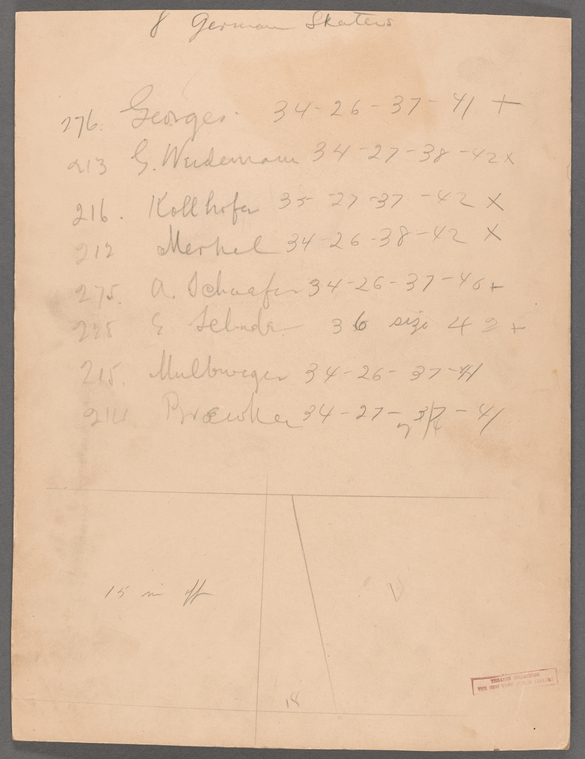 8 German Skaters
276. Georges. 34-26-37-41 +
213 G. Weidemann 34-27-38-42 x
216. Kollhofer 35 27-37-42 X
212 Merkel 34-26-38-42 X
275. A. Schaefer 34-26-37-40 +
E 36 size 42 +
215. 34-26-37-41
34-27-37-41
15 in off
V
18